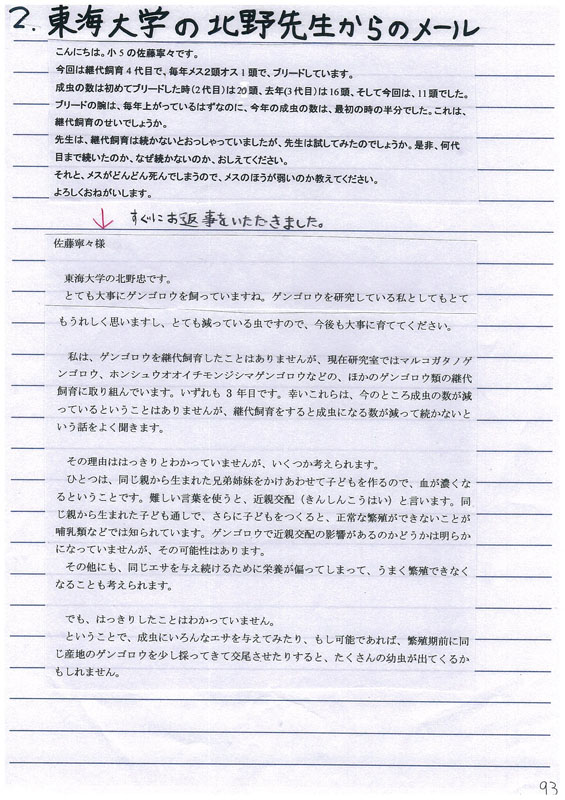 2. 東海大学の北野先生からのメール
こんにちは。小5の佐藤寧々です。
今回は継代飼育4代目で、毎年メス2頭オス1頭で、ブリードしています。
成虫の数は初めてブリードした時(2代目)は20頭、去年(3代目)は16頭、そして今回は、11頭でした。
ブリードの腕は、毎年上がっているはずなのに、今年の成虫の数は、最初の時の半分でした。これは、
継代飼育のせいでしょうか。
先生は、継代飼育は続かないとおっしゃっていましたが、先生は試してみたのでしょうか。是非、何代
目まで続いたのか、なぜ続かないのか、おしえてください。
それと、メスがどんどん死んでしまうので、メスのほうが弱いのか教えてください。
よろしくおねがいします。
すぐにお返事をいただきました。
佐藤寧々様
東海大学の北野忠です。
とても大事にゲンゴロウを飼っていますね。ゲンゴロウを研究している私としてもとて
もうれしく思いますし、とても減っている虫ですので、今後も大事に育ててください。
私は、ゲンゴロウを継代飼育したことはありませんが、現在研究室ではマルコガタノゲ
ンゴロウ、ホンシュウオオイチモンジシマゲンゴロウなどの、ほかのゲンゴロウ類の継代
飼育に取り組んでいます。いずれも 3 年目です。幸いこれらは、今のところ成虫の数が減
っているということはありませんが、継代飼育をすると成虫になる数が減って続かないと
いう話をよく聞きます。
その理由ははっきりとわかっていませんが、いくつか考えられます。
ひとつは、同じ親から生まれた兄弟姉妹をかけあわせて子どもを作るので、血が濃くな
るということです。難しい言葉を使うと、近親交配（きんしんこうはい）と言います。同
じ親から生まれた子ども通しで、さらに子どもをつくると、正常な繁殖ができないことが
哺乳類などでは知られています。ゲンゴロウで近親交配の影響があるのかどうかは明らか
になっていませんが、その可能性はあります。
その他にも、同じエサを与え続けるために栄養が偏ってしまって、うまく繁殖できなく
なることも考えられます。
でも、はっきりしたことはわかっていません。
ということで、成虫にいろんなエサを与えてみたり、もし可能であれば、繁殖期前に同
じ産地のゲンゴロウを少し採ってきて交尾させたりすると、たくさんの幼虫が出てくるか
もしれません。
93